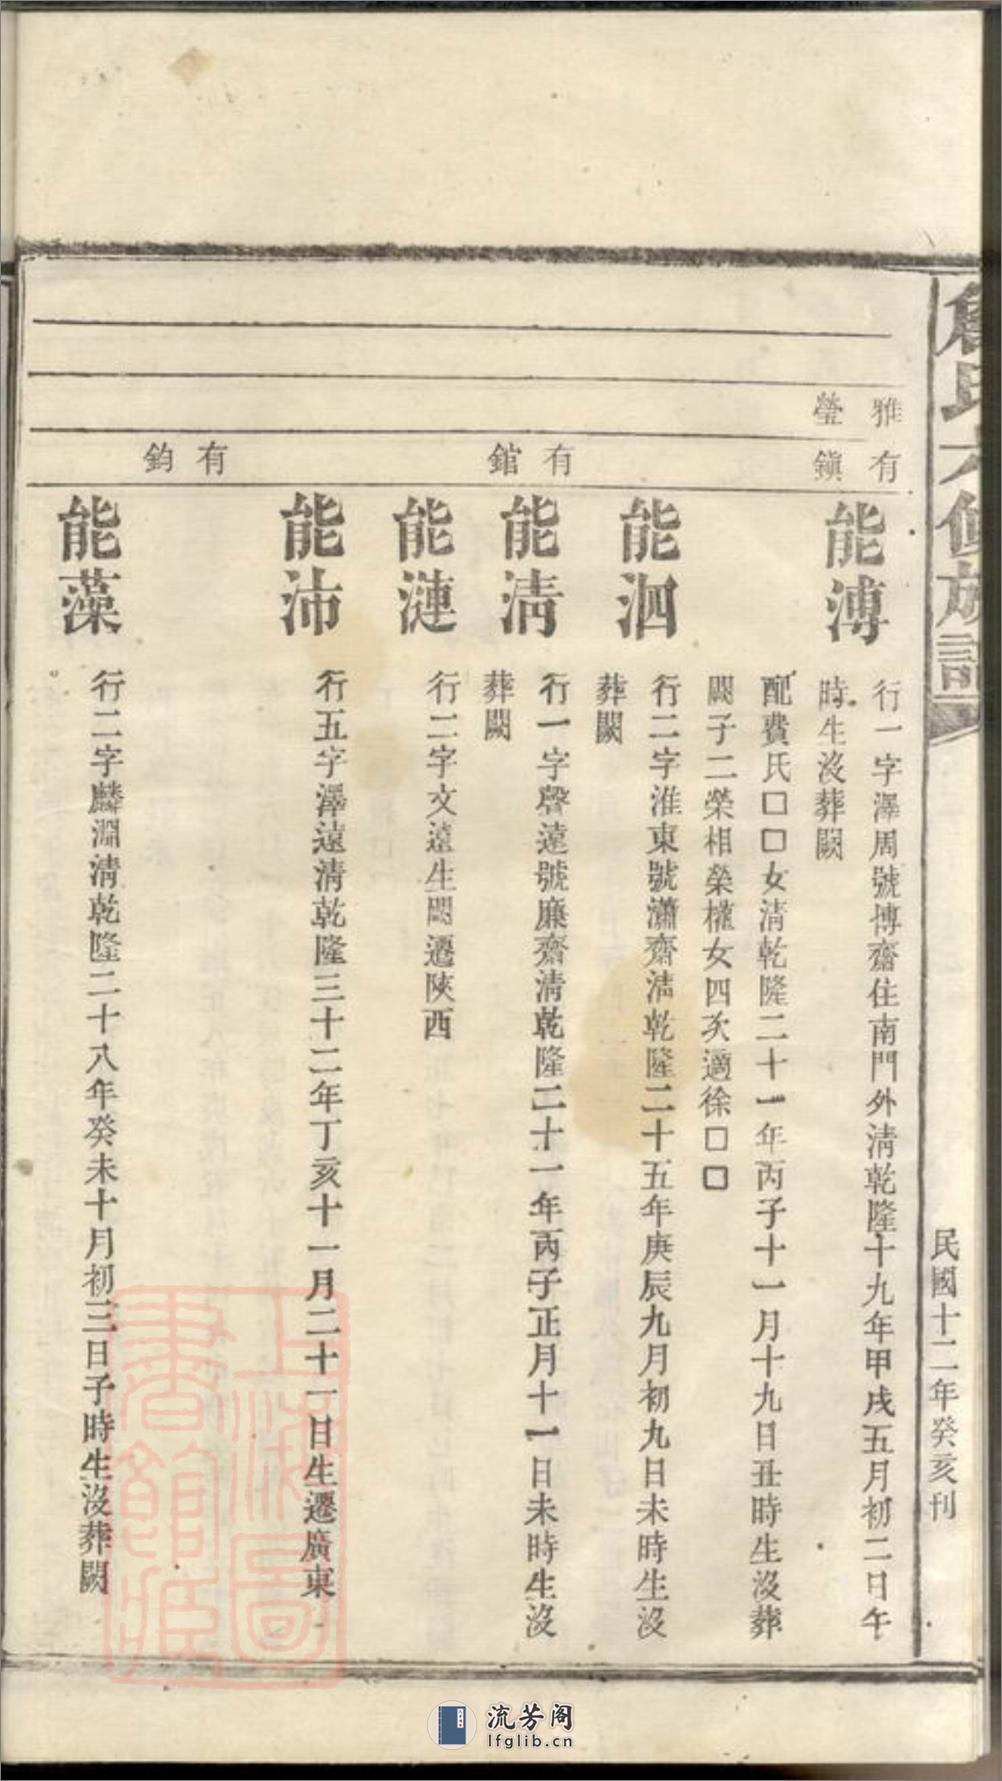 詹氏六修族譜
民國十二年癸亥刊
雅瑩
有鎮
能溥
行一字澤周號博齋住南門外清乾隆十九年甲戌五月初二日午
時生沒葬闕
配費氏□□女清乾隆二十一年丙子十一月十九日丑時生沒葬
闕子二榮相榮權女四次適徐□□
能泗
行二字淮東號瀟齋清乾隆二十五年庚辰九月初九日未時生沒
葬闕
有錧
能清
行一字聲遠號廉齋清乾隆二十一年丙子正月十一日未時生沒
葬闕
能漣
行二字文遠生闕遷陝西
能沛
行五字澤遠清乾隆三十二年丁亥十一月二十一日生遷廣東
有鈞
能藻
行二字麟淵清乾隆二十八年癸未十月初三日子時生沒葬闕
上海圖書館藏
流芳阁
lfglib.cn